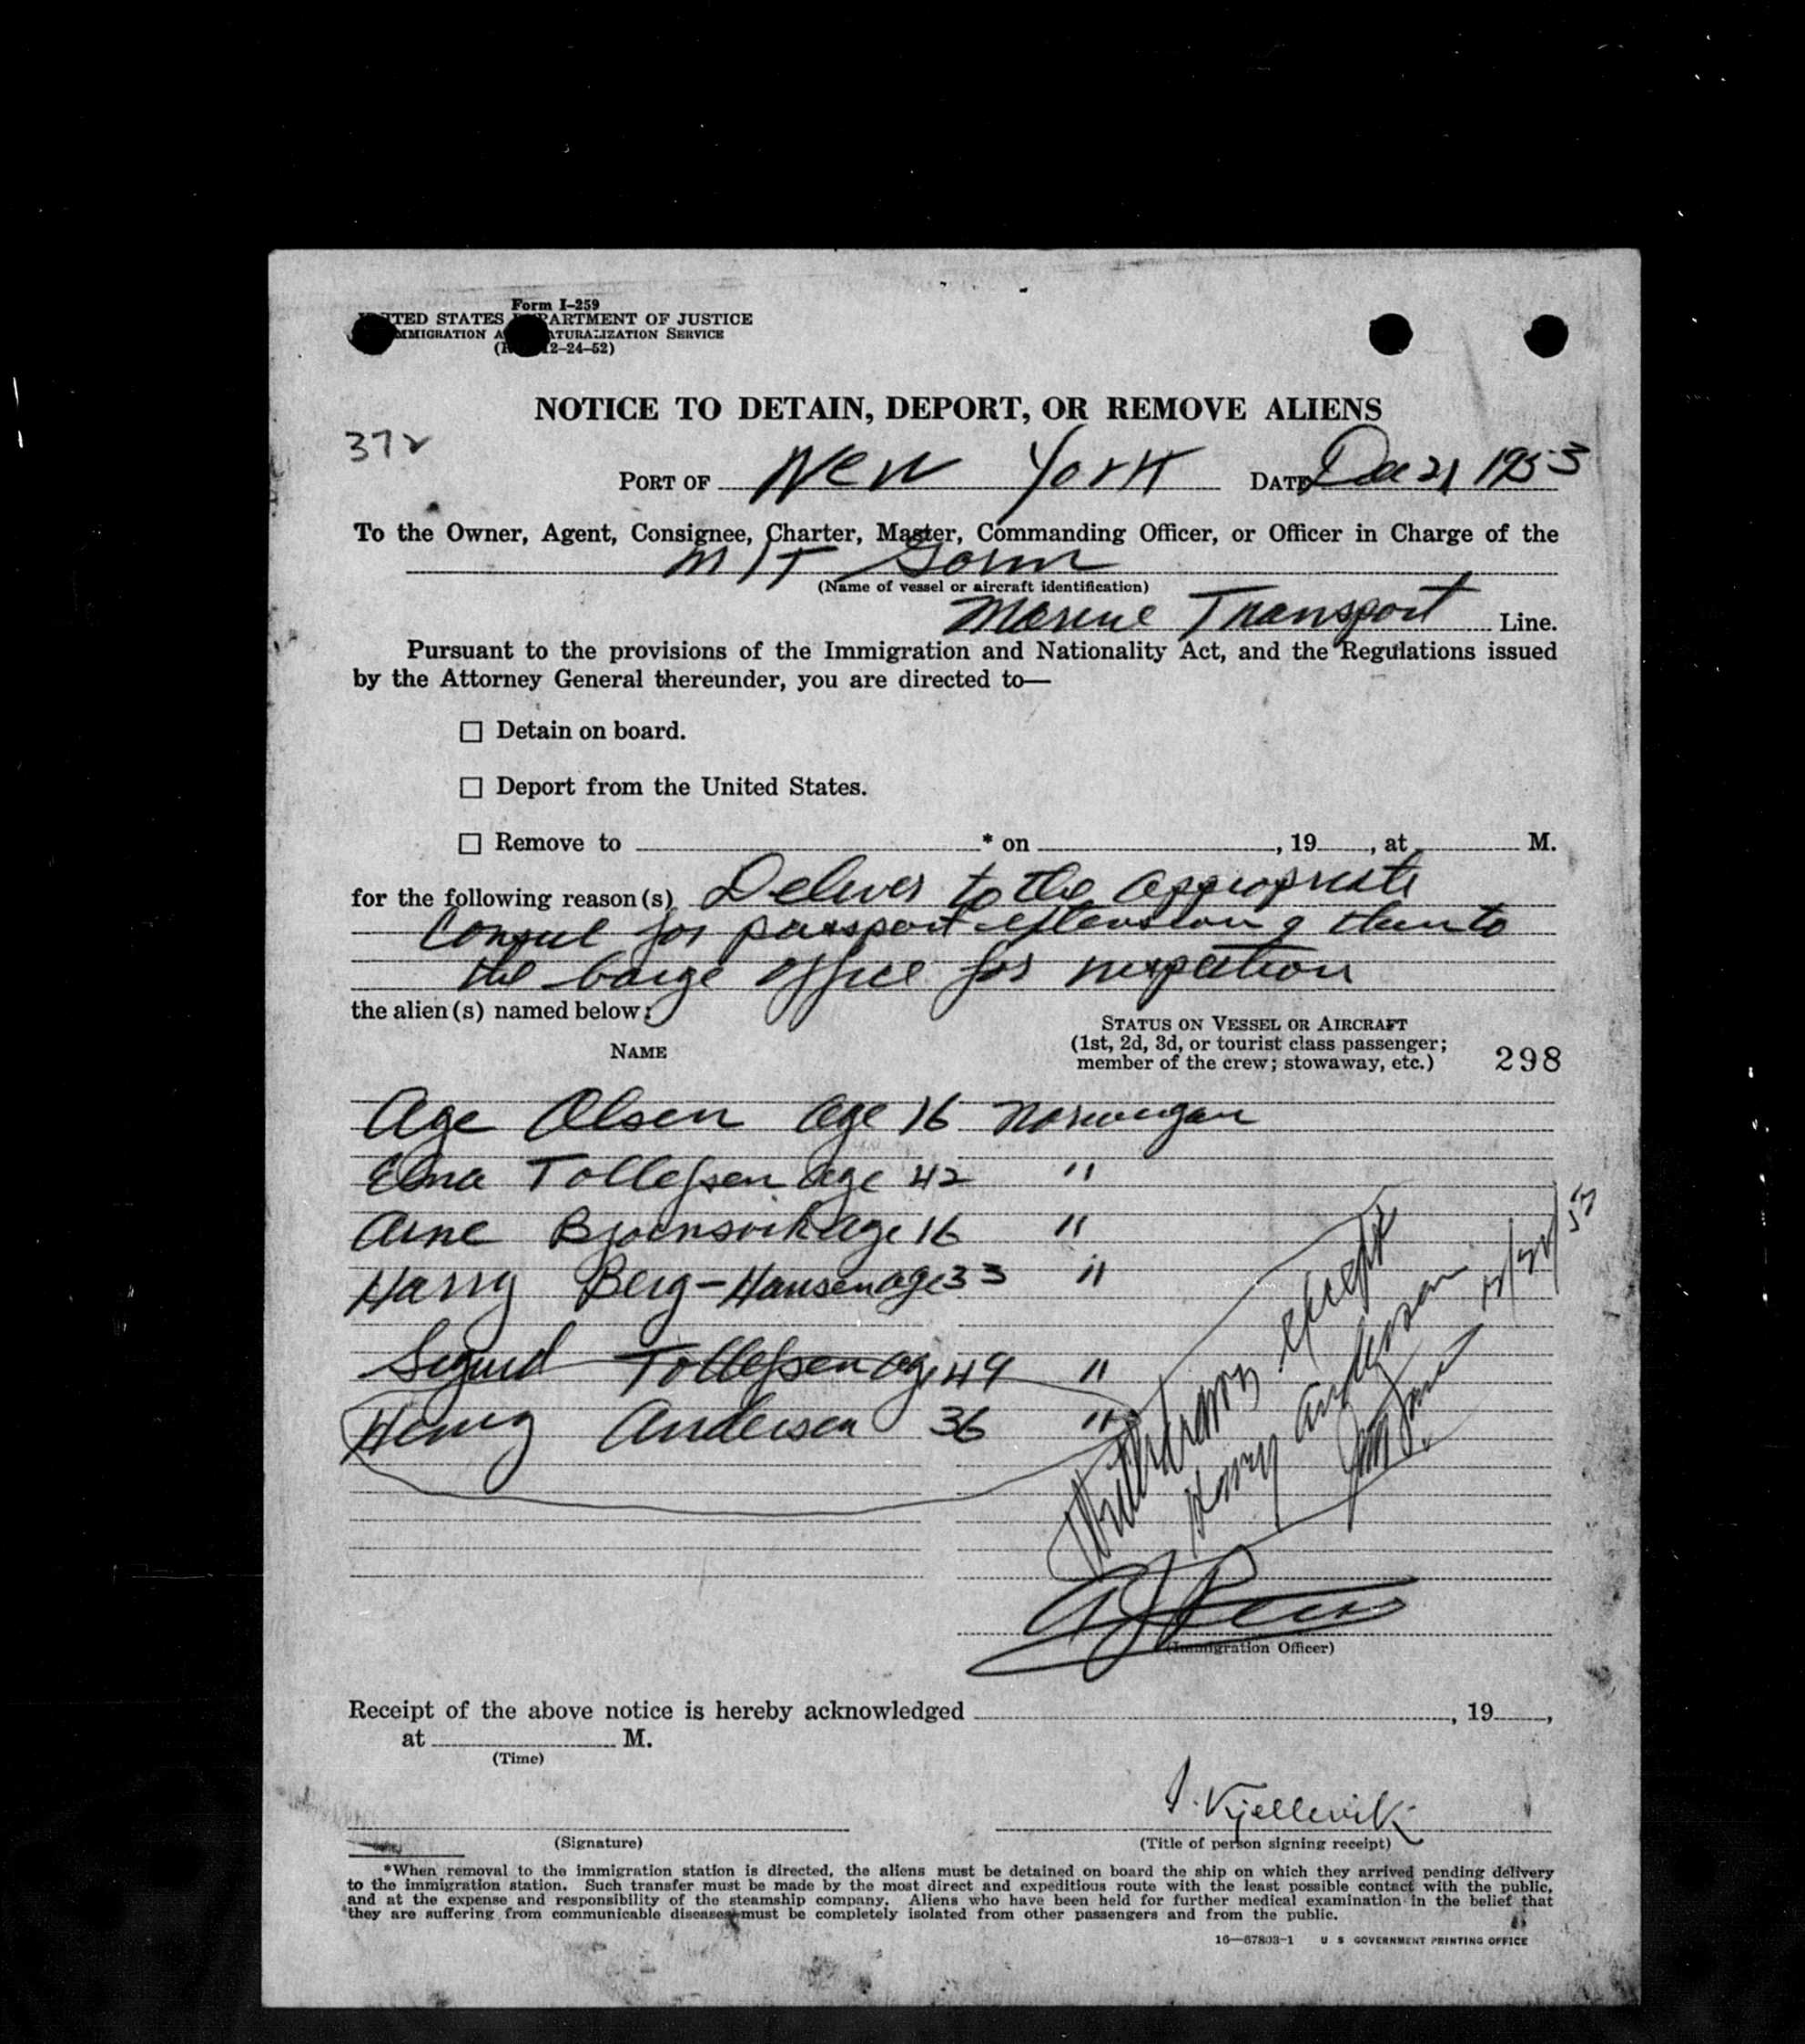 Form I-259
UNITED STATES DEPARTMENT OF JUSTICE
IMMIGRATION AND NATURALIZATION SERVICE
12-24-52)
NOTICE TO DETAIN, DEPORT, OR REMOVE ALIENS
372
PORT OF New York DATE Dec 21 1953
To the Owner, Agent, Consignee, Charter, Master, Commanding Officer, or Officer in Charge of the
M/T Gorm
(Name of vessel or aircraft identification)
Marine Transport Line.
Pursuant to the provisions of the Immigration and Nationality Act, and the Regulations issued
by the Attorney General thereunder, you are directed to—
☐ Detain on board.
☐ Deport from the United States.
☐ Remove to * on , 19 , at M.
for the following reason(s) Deliver to the appropriate
Consul for passport extension & then to
the barge office for inspection
the alien(s) named below:
NAME
STATUS ON VESSEL OR AIRCRAFT
(1st, 2d, 3d, or tourist class passenger;
member of the crew; stowaway, etc.)
298
Age Olsen age 16 Norwegian
Elna Tollefsen age 42 "
Arne Bjoensvik age 16 "
Harry Berg-Hansen age 33 "
Sigurd Tollefsen age 49 "
Henry Andersen 36 "
Withdrawn except
Harry Anderson
(Immigration Officer)
Receipt of the above notice is hereby acknowledged , 19 ,
at M.
(Time)
J. Kjellevik
(Signature)
(Title of person signing receipt)
*When removal to the immigration station is directed, the aliens must be detained on board the ship on which they arrived pending delivery
to the immigration station. Such transfer must be made by the most direct and expeditious route with the least possible contact with the public,
and at the expense and responsibility of the steamship company. Aliens who have been held for further medical examination in the belief that
they are suffering from communicable diseases must be completely isolated from other passengers and from the public.
16—67803-1 U S GOVERNMENT PRINTING OFFICE